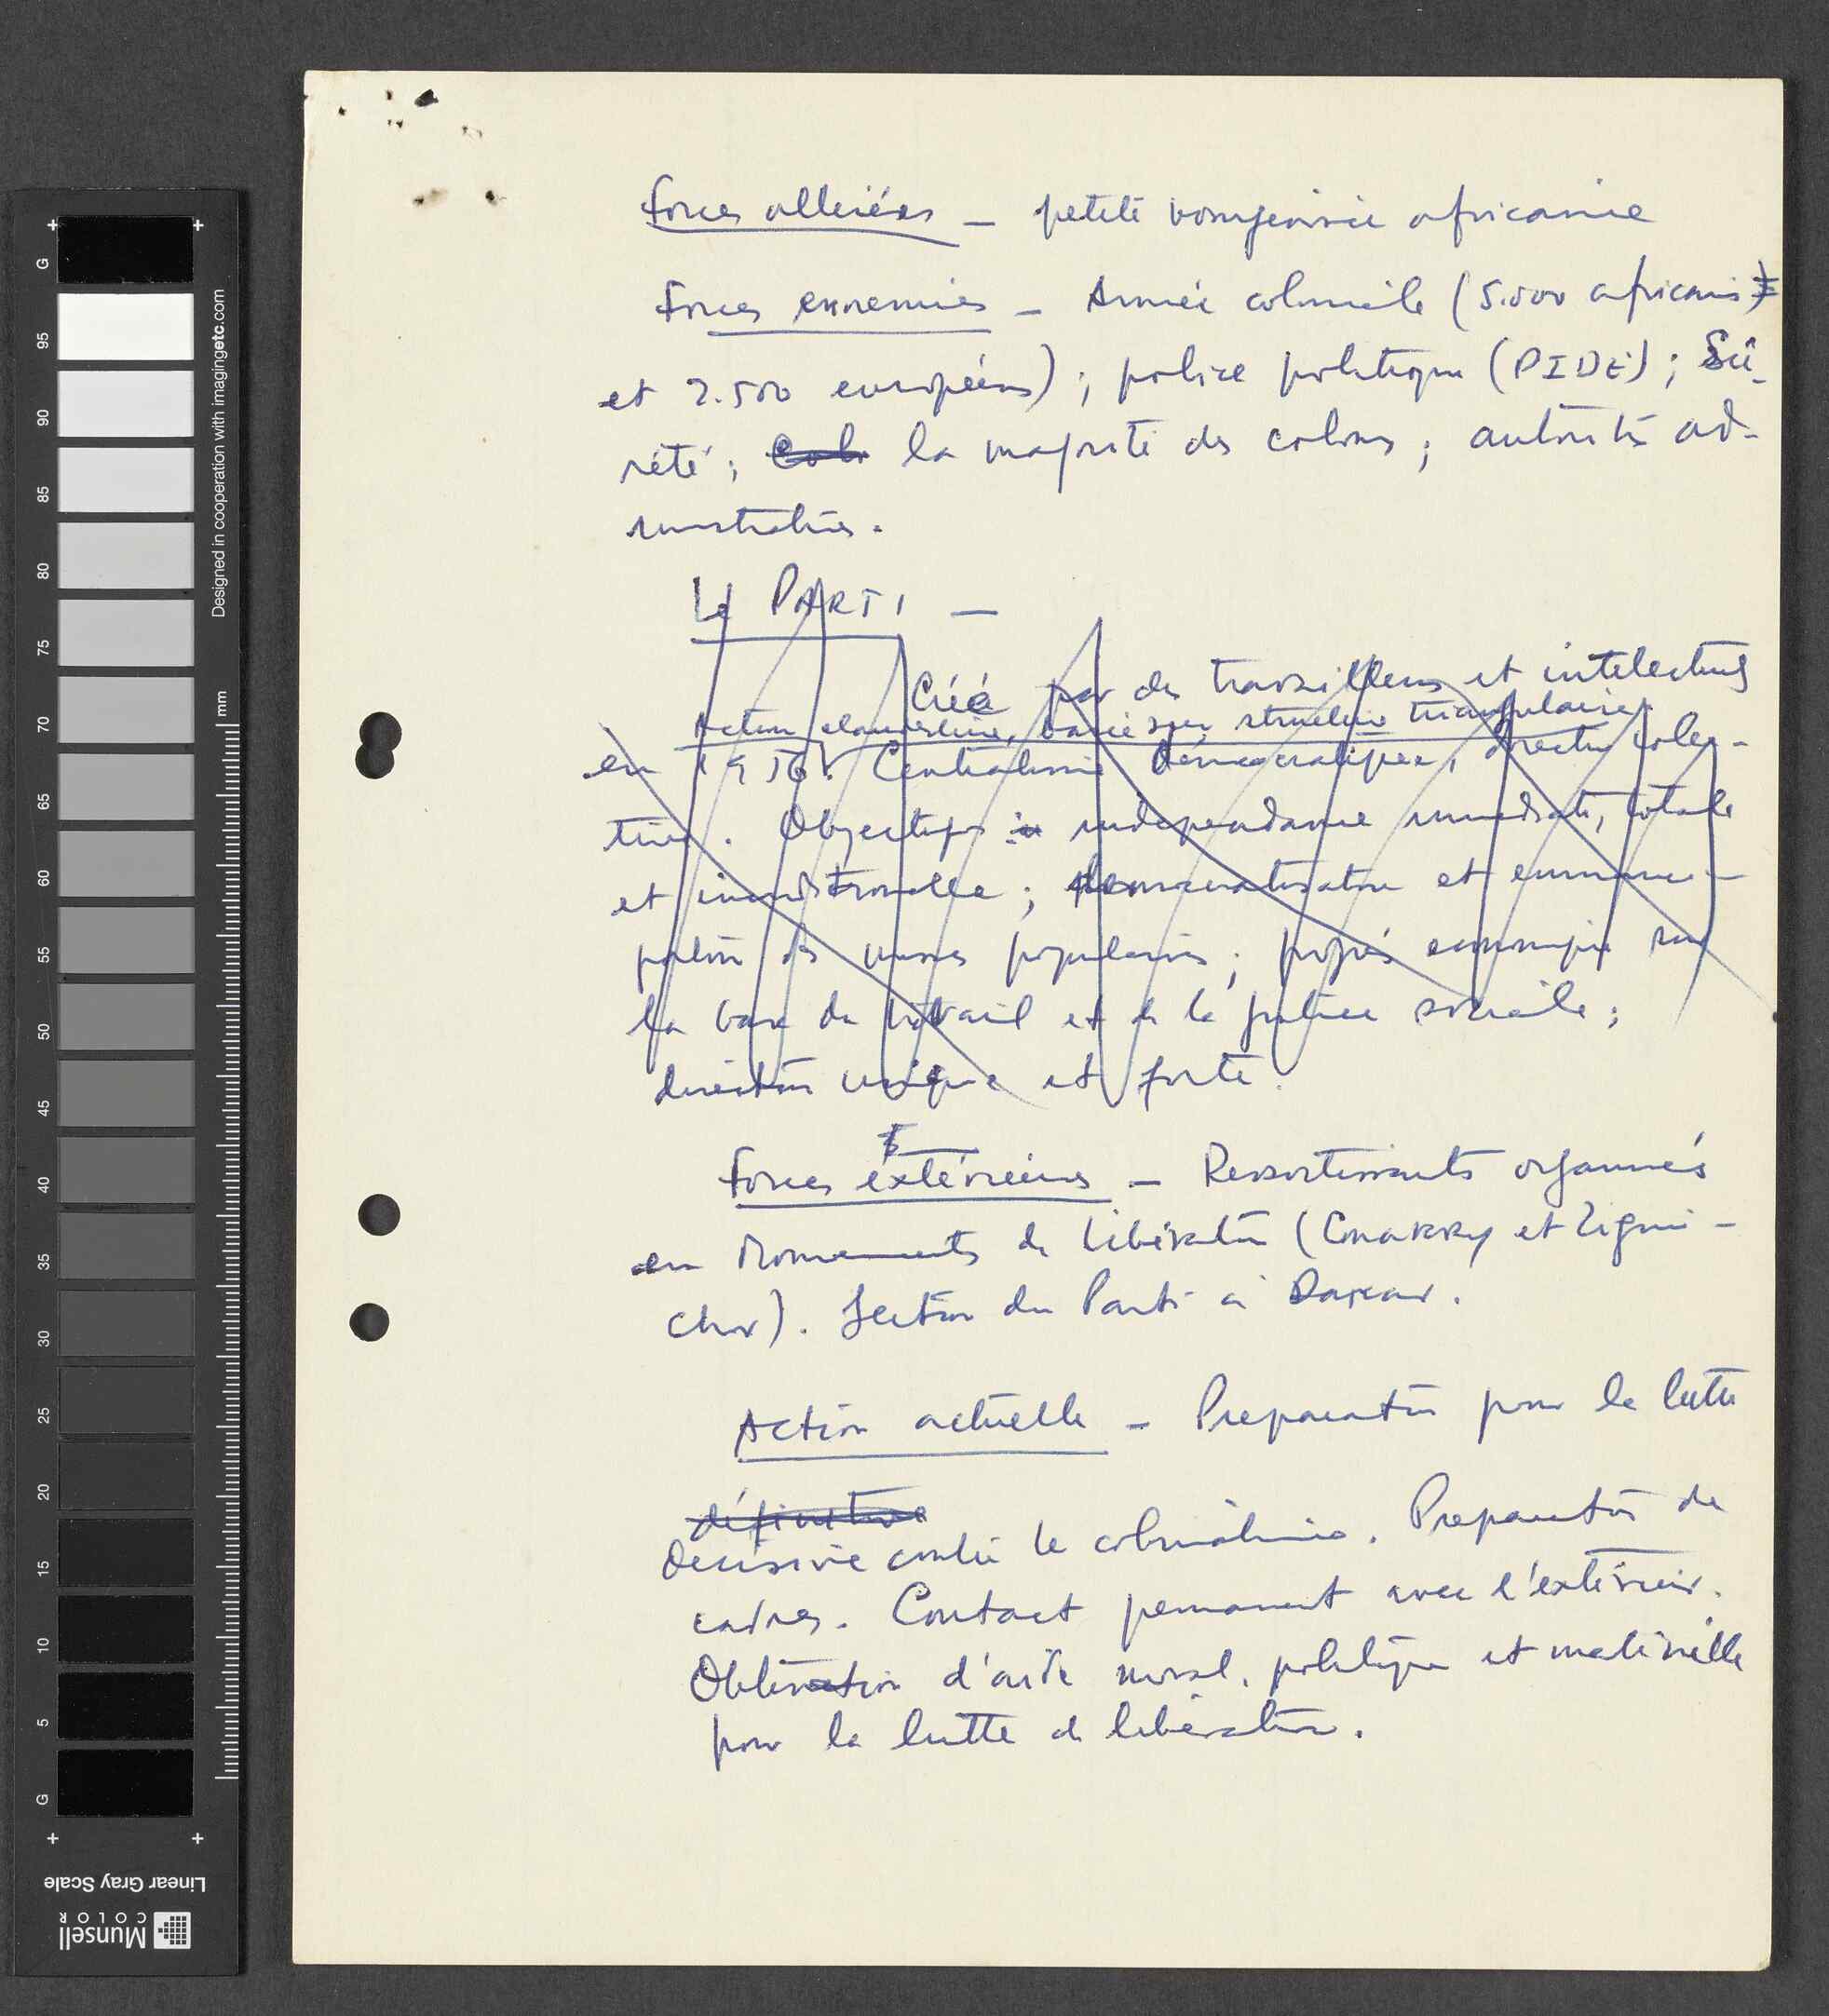 Forces alliées — petite bourgeoisie africaine
Forces ennemies — Armée coloniale (5.000 africains
et 2.500 européens) ; police politique (PIDE) ; Sû-
reté ; la majorité des colons ; autorités ad-
ministratives.
Le PARTI —
Créé par des travailleurs et intelectuels
Action clandestine, basée sur structure triangulaire.
en 1956. Centralisme démocratique, direction colec-
tive. Objectifs : indépendance immédiate, totale
et inconditionnelle ; démocratisation et emanci-
pation des masses populaires ; progrés economique sur
la base du travail et de la justice sociale ;
direction unique et forte.
Forces extérieures — Ressortissants organisés
en Mouvements de Libération (Conakry et Zigui-
chor). Section du Parti à Dakar.
Action actuelle — Preparation pour la lutte
définitive
decisive contre le colonialisme. Preparation de
cadres. Contact permanent avec l'extérieur.
Obtention d'aide moral, politique et matérielle
pour la lutte de libération.
G
95
90
85
80
75
70
65
60
55
50
45
40
35
30
25
20
15
10
5
G
mm
Designed in cooperation with imagingetc.com
Linear Gray Scale
Munsell
COLOR